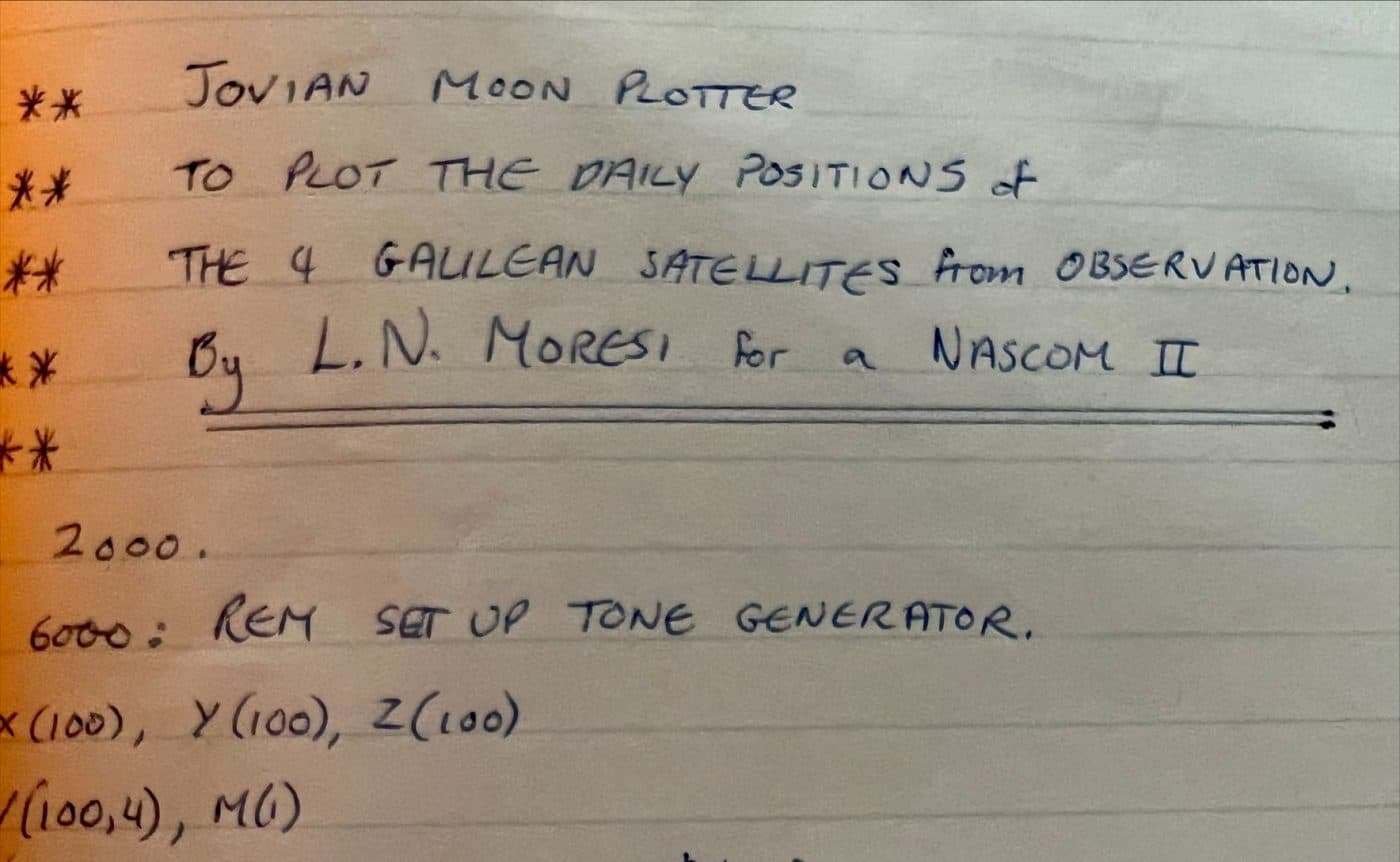 ** JOVIAN MOON PLOTTER
** TO PLOT THE DAILY POSITIONS of
** THE 4 GALILEAN SATELLITES from OBSERVATION.
** By L. N. MORESI for a NASCOM II
**
2000.
6000: REM SET UP TONE GENERATOR.
X(100), Y(100), Z(100)
(100,4), M(1)